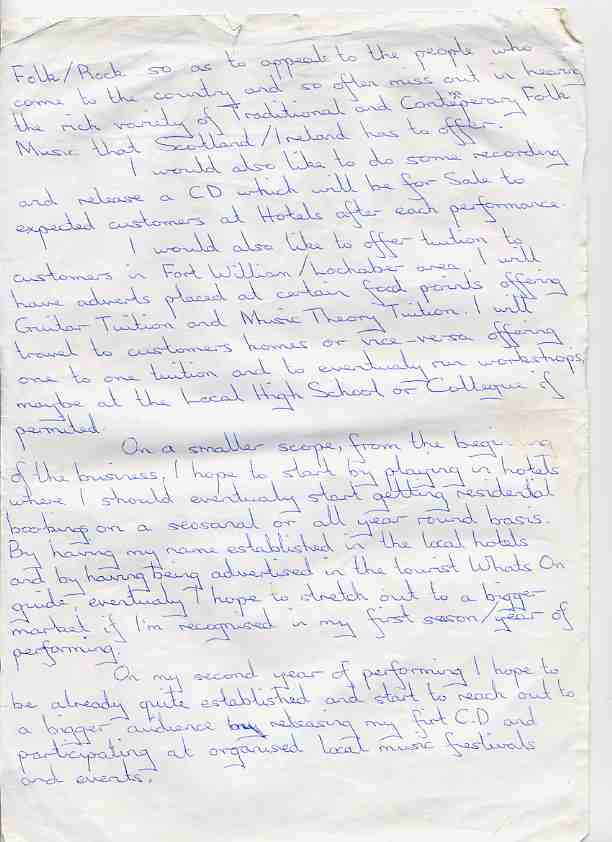 Folk/Rock so as to appeal to the people who
come to the country and so often miss out in hearing
the rich variety of Traditional and Contemperary Folk
Music that Scotland/Ireland has to offer.
I would also like to do some recording
and release a CD which will be for Sale to
expected customers at Hotels after each performance.
I would also like to offer tuition to
customers in Fort William/Lochaber area. I will
have adverts placed at certain focal points offering
Guitar Tuition and Music Theory Tuition. I will
travel to customers homes or vice-versa offering
one to one tuition and to eventualy run workshops,
maybe at the Local High School or Collegue if
permited.
On a smaller scope, from the begining
of the business, I hope to start by playing in hotels
where I should eventualy start getting residential
bookings on a seosanal or all year round basis.
By having my name established in the local hotels
and by having being advertised in the tourist Whats On
guide, eventualy I hope to stretch out to a bigger
market if I'm recognised in my first season/year of
performing.
On my second year of performing I hope to
be already quite established and start to reach out to
a bigger audience by releasing my first C.D and
participating at organised local music festivals
and events.